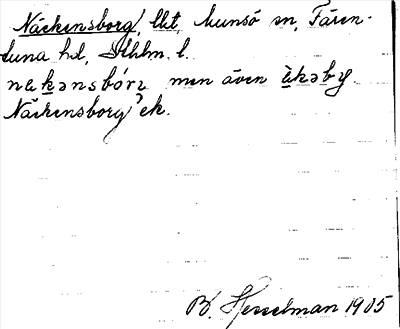 Näckensborg, lht, Munsö sn, Fären-
tuna hd, Sthlm. l.
nækənsbórɪ men även ὲkəby
Näckensborg ek.
B. Hesselman 1905